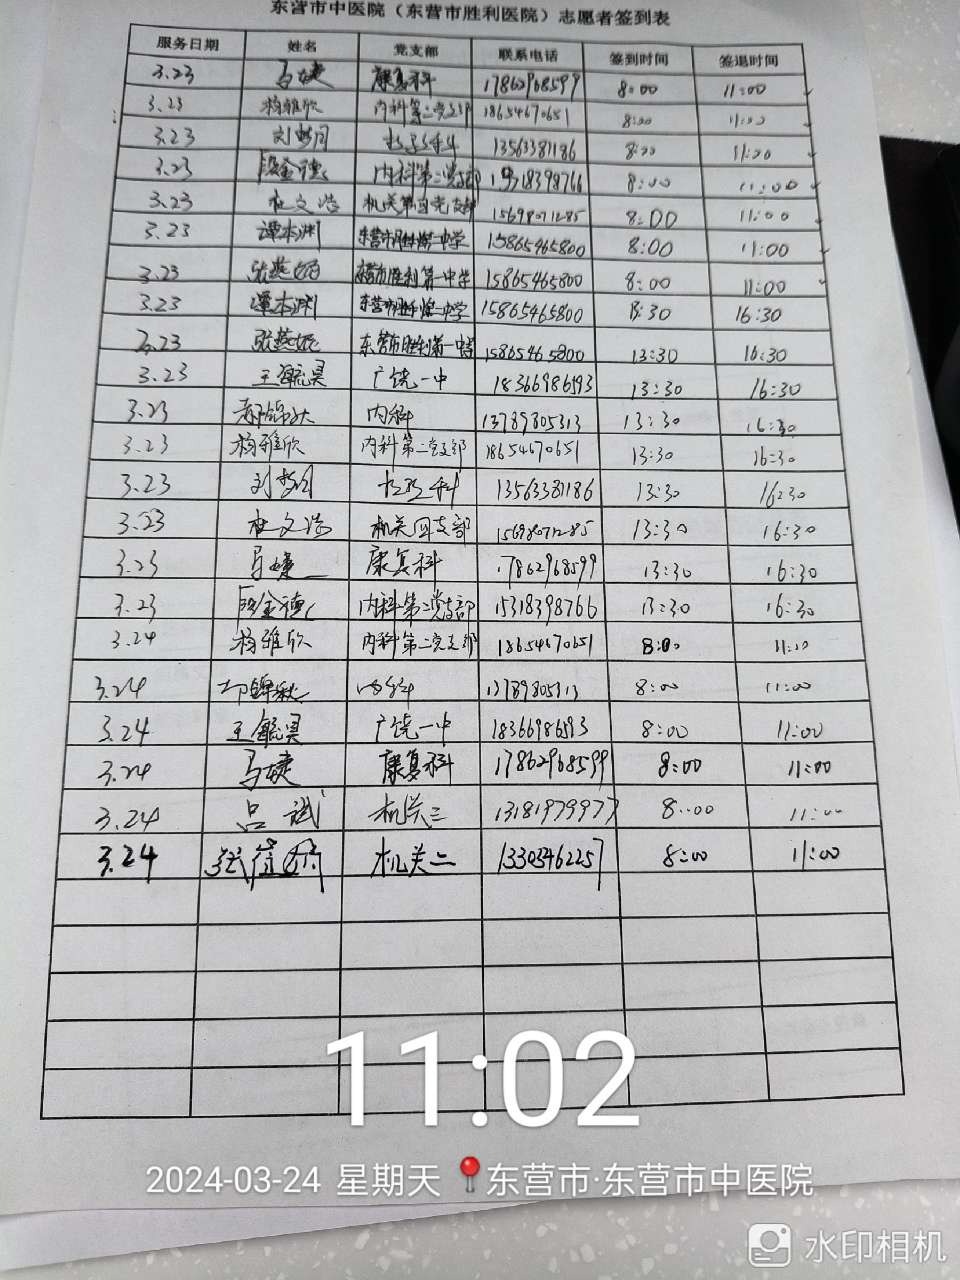 东营市中医院（东营市胜利医院）志愿者签到表
服务日期 姓名 党支部 联系电话 签到时间 签退时间
3.23 马婕 康复科 17862968599 8:00 11:00
3.23 杨雅欣 内科第二党支部 18654670651 8:00 11:00
3.23 刘 13563381186 8:00 11:00
3.23 段金德 内科第二党支部 15318398766 8:00 11:00
3.23 杜文浩 机关第四党支部 15698071285 8:00 11:00
3.23 谭本渊 东营市胜利第一中学 15865465800 8:00 11:00
3.23 张燕妮 东营市胜利第一中学 15865465800 8:00 11:00
3.23 谭本渊 东营市胜利第一中学 15865465800 13:30 16:30
3.23 张燕妮 东营市胜利第一中学 15865465800 13:30 16:30
3.23 王毓昊 广饶一中 18366986193 13:30 16:30
3.23 内科 13789805313 13:30 16:30
3.23 杨雅欣 内科第二党支部 18654670651 13:30 16:30
3.23 刘 13563381186 13:30 16:30
3.23 杜文浩 机关四支部 15698071285 13:30 16:30
3.23 马婕 康复科 17862968599 13:30 16:30
3.23 段金德 内科第二党支部 15318398766 13:30 16:30
3.24 杨雅欣 内科第二党支部 18654670651 8:00 11:00
3.24 内科 13789805313 8:00 11:00
3.24 王毓昊 广饶一中 18366986193 8:00 11:00
3.24 马婕 康复科 17862968599 8:00 11:00
3.24 吕斌 机关三 13181979977 8:00 11:00
3.24 机关二 13305462257 8:00 11:00
11:02
2024-03-24 星期天 东营市·东营市中医院
水印相机